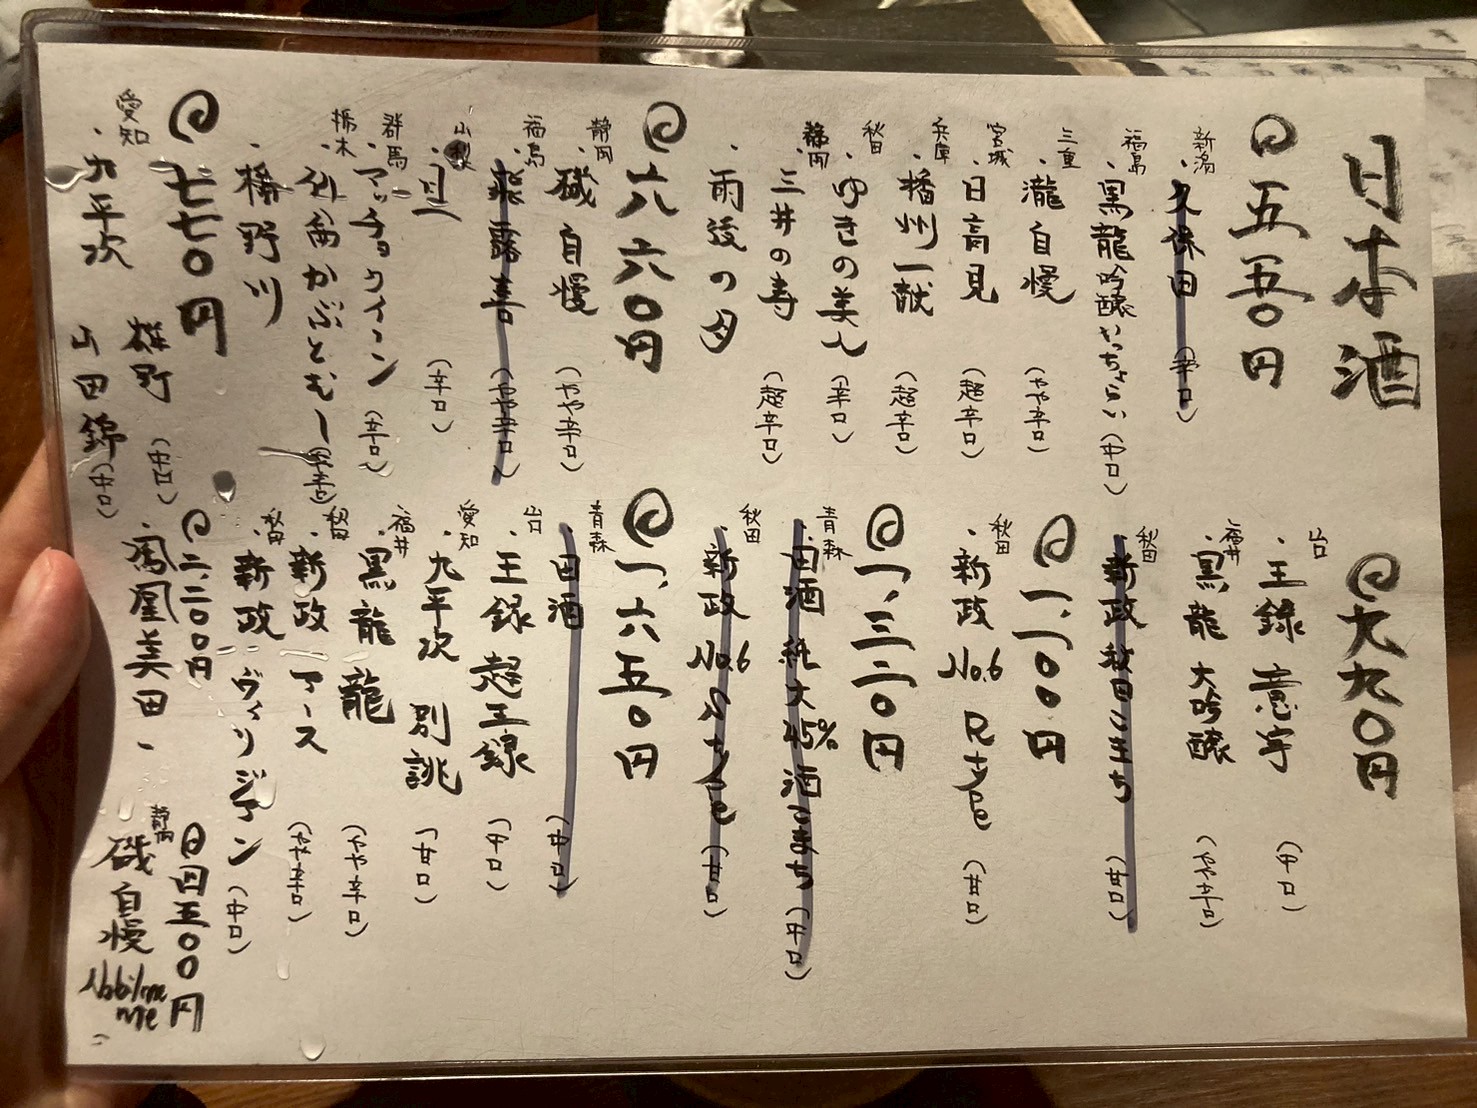 日本酒
@五五〇円
新潟
・久保田（辛口）
福島
・黒龍吟醸いっちょらい（中口）
三重
・瀧自慢（やや辛口）
宮城
・日高見（超辛口）
兵庫
・播州一献（超辛口）
秋田
・ゆきの美人（辛口）
静岡
・三井の寿（超辛口）
・雨後の月
@六六〇円
静岡
・磯自慢（やや辛口）
福島
・飛露喜（やや辛口）
山梨
（辛口）
群馬
・マッチョクイーン（辛口）
栃木
・仙禽かぶとむし
・橋野川
@七七〇円
愛知
・九平次
雄町（中口）
山田錦（中口）
@九九〇円
山口
・王録 意宇（中口）
福井
・黒龍 大吟醸（やや辛口）
秋田
・新政 秋田こまち（甘口）
@一、一〇〇円
秋田
・新政 No.6 R type（甘口）
@一、三二〇円
青森
・田酒 純大45% 酒こまち（中口）
秋田
・新政 No.6 （甘口）
@一、六五〇円
青森
・田酒（中口）
山口
・王録 超王録（中口）
愛知
・九平次 別誂（甘口）
福井
・黒龍 龍（やや辛口）
秋田
・新政 アース（やや辛口）
秋田
・新政 ヴィリジアン（中口）
@二、二〇〇円
・鳳凰美田
@円五〇〇円
静岡
磯自慢